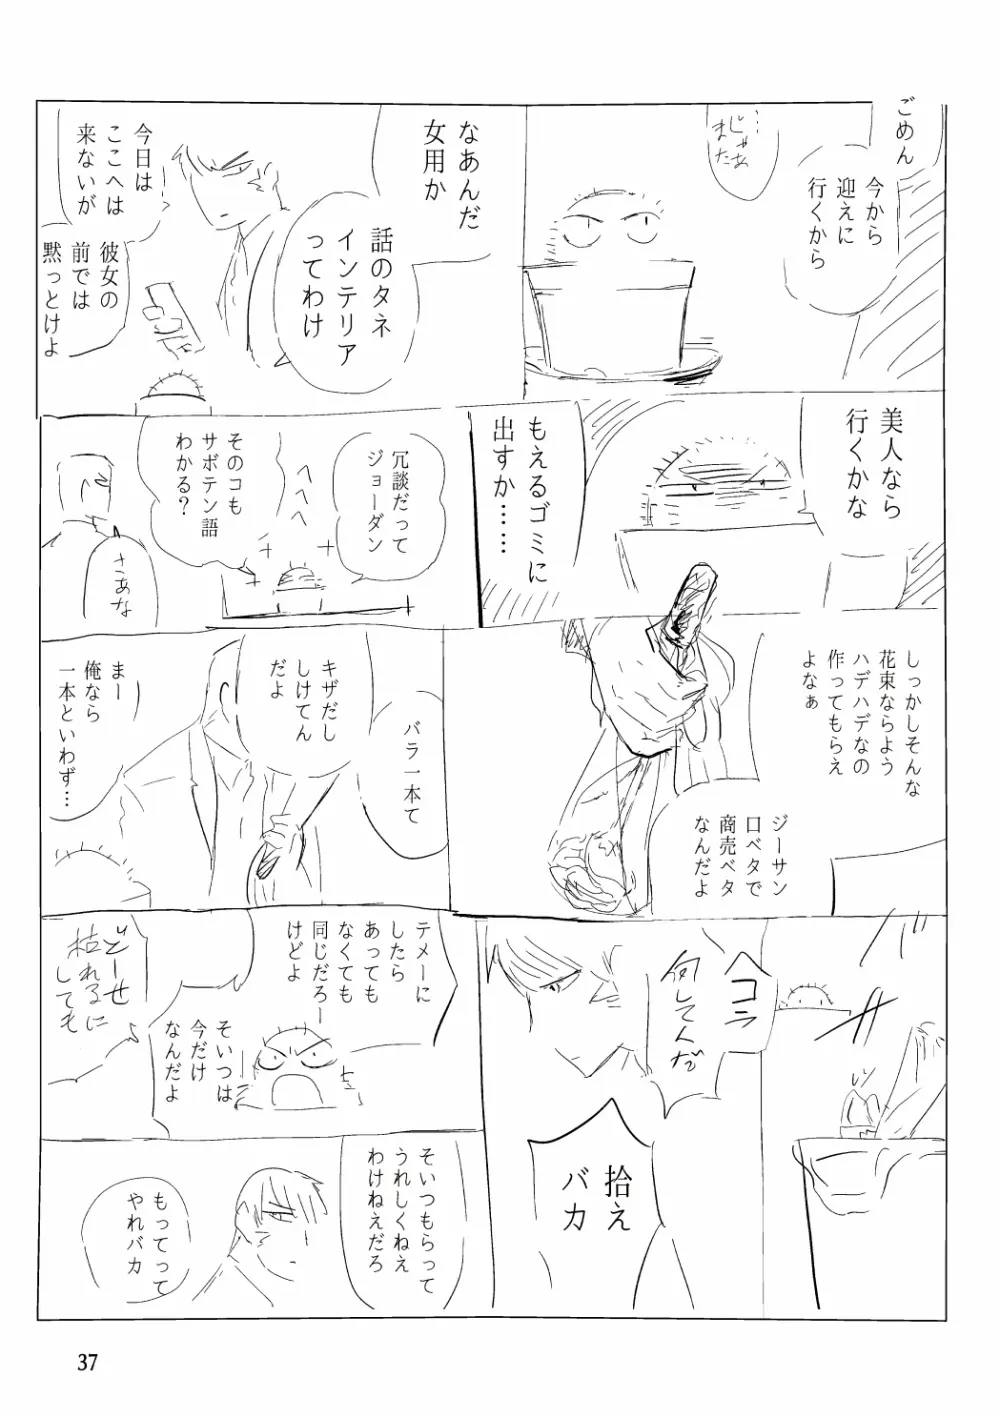 ごめん
今から
迎えに
行くから
…
じゃあ
また
なあんだ
女用か
話のタネ
インテリア
ってわけ
今日は
ここへは
来ないが
彼女の
前では
黙っとけよ
美人なら
行くかな
もえるゴミに
出すか……
冗談だって
ジョーダン
へへへ
そのコも
サボテン語
わかる?
さあな
しっかしそんな
花束ならよう
ハデハデなの
作ってもらえ
よなぁ
ジーサン
口ベタで
商売ベタ
なんだよ
バラ一本て
キザだし
しけてん
だよ
まー
俺なら
一本といわず…
バ
ヘコ
何してんだ
拾え
バカ
テメーに
したら
あっても
なくても
同じだろー
けどよ
そいつは
今だけ
なんだよ
どーせ
枯れるに
しても
そいつもらって
うれしくねえ
わけねえだろ
もってって
やれバカ
37